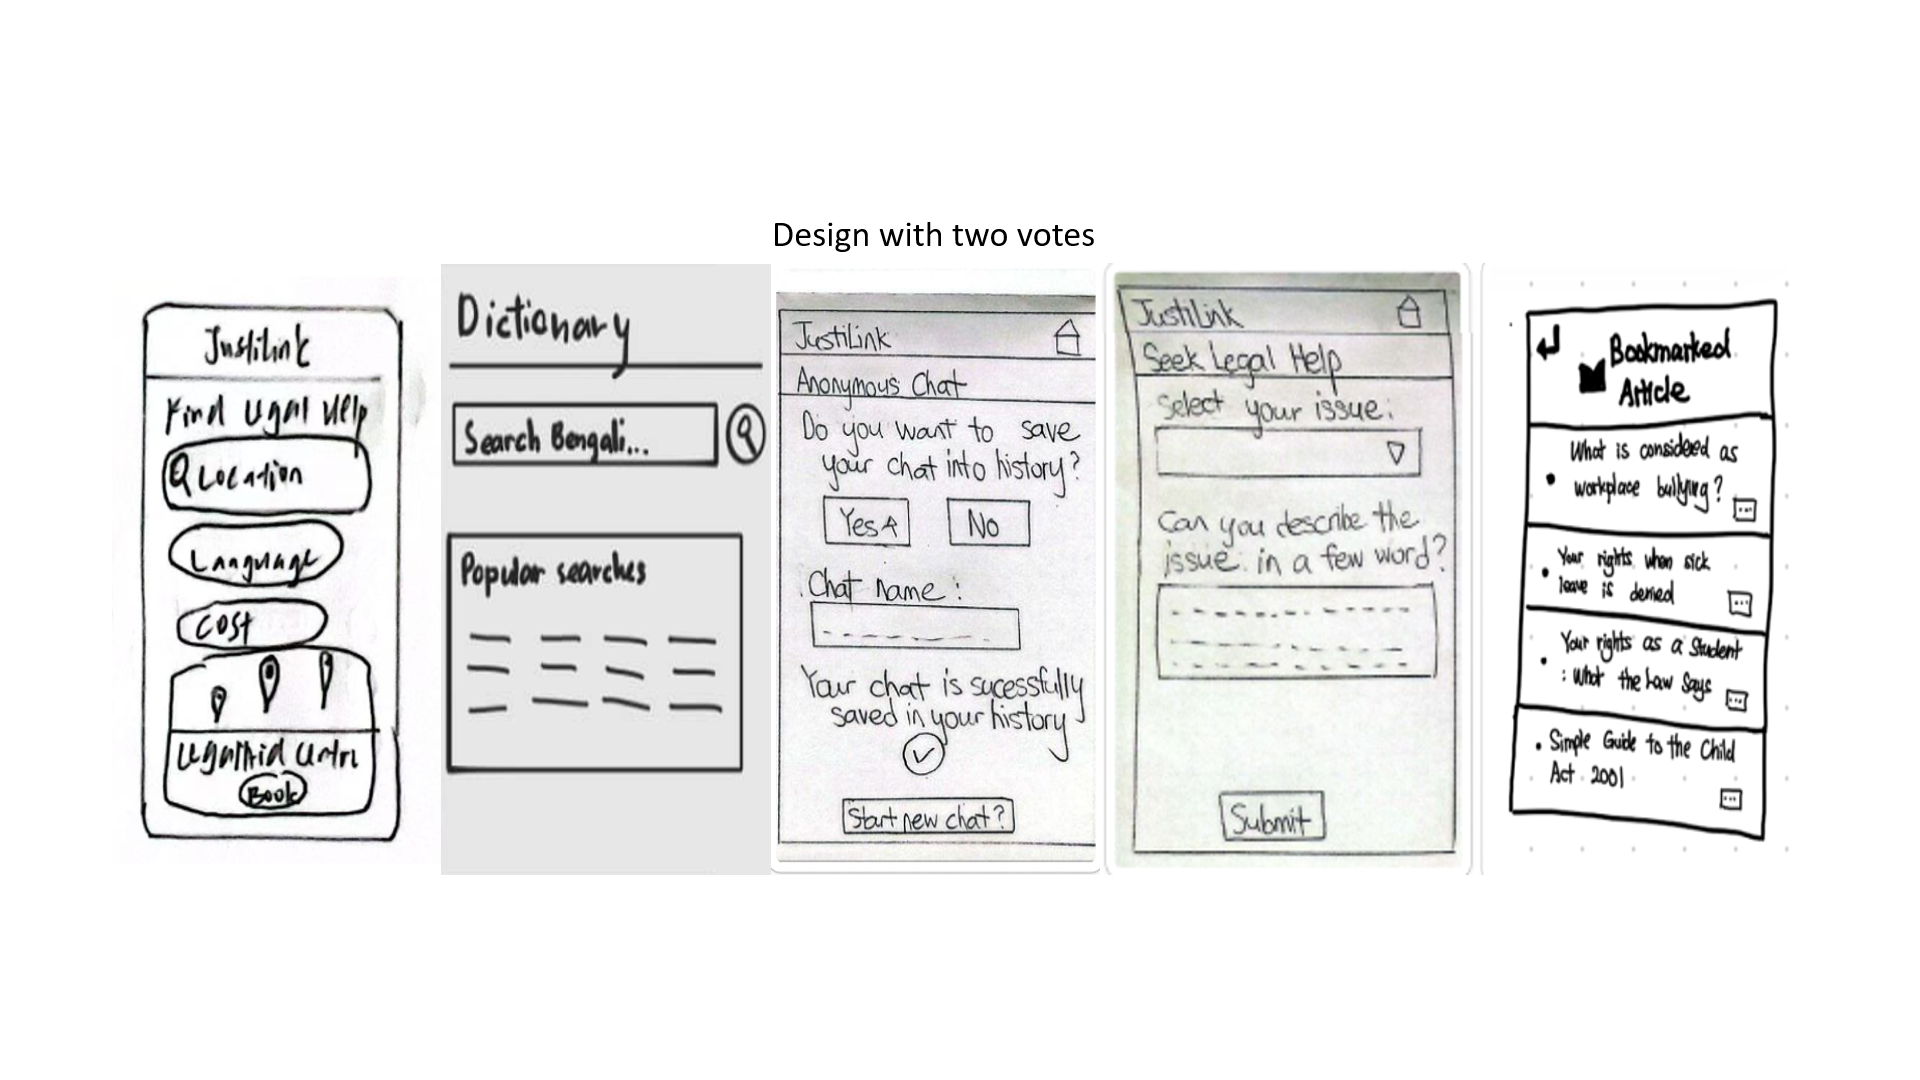 Design with two votes
Justilink
Find Legal Help
Location
Language
Cost
Legal Aid
Book
Dictionary
Search Bengali...
Popular searches
JustiLink
Anonymous Chat
Do you want to save
your chat into history?
Yes
No
Chat name :
Your chat is sucessfully
saved in your history
Start new chat?
JustiLink
Seek Legal Help
Select your issue:
Can you describe the
issue in a few word?
Submit
Bookmarked
Article
What is considered as
workplace bullying?
Your rights when sick
leave is denied
Your rights as a Student
: What the Law Says
Simple Guide to the Child
Act 2001